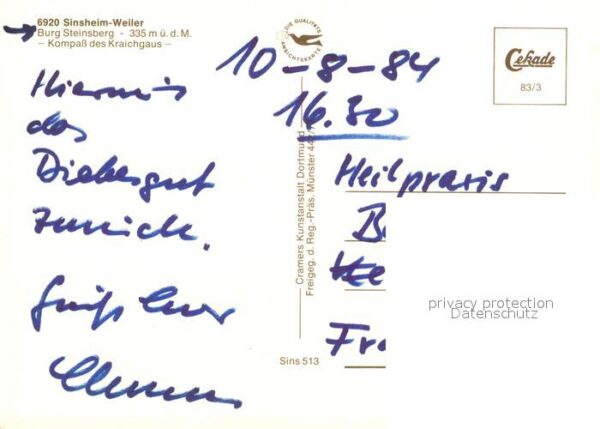 6920 Sinsheim-Weiler
Burg Steinsberg - 335 m ü. d. M.
- Kompaß des Kraichgaus -
DIE QUALITÄTS
ANSICHTSKARTE
Cekade
83/3
10-8-84
16.30
Hiermit
das
Diebesgut
zurück.
Gruß Euer
Cramers Kunstanstalt Dortmund
Freigeg. d. Reg.-Präs. Münster
Heilpraxis
B
Fr
privacy protection
Datenschutz
Sins 513